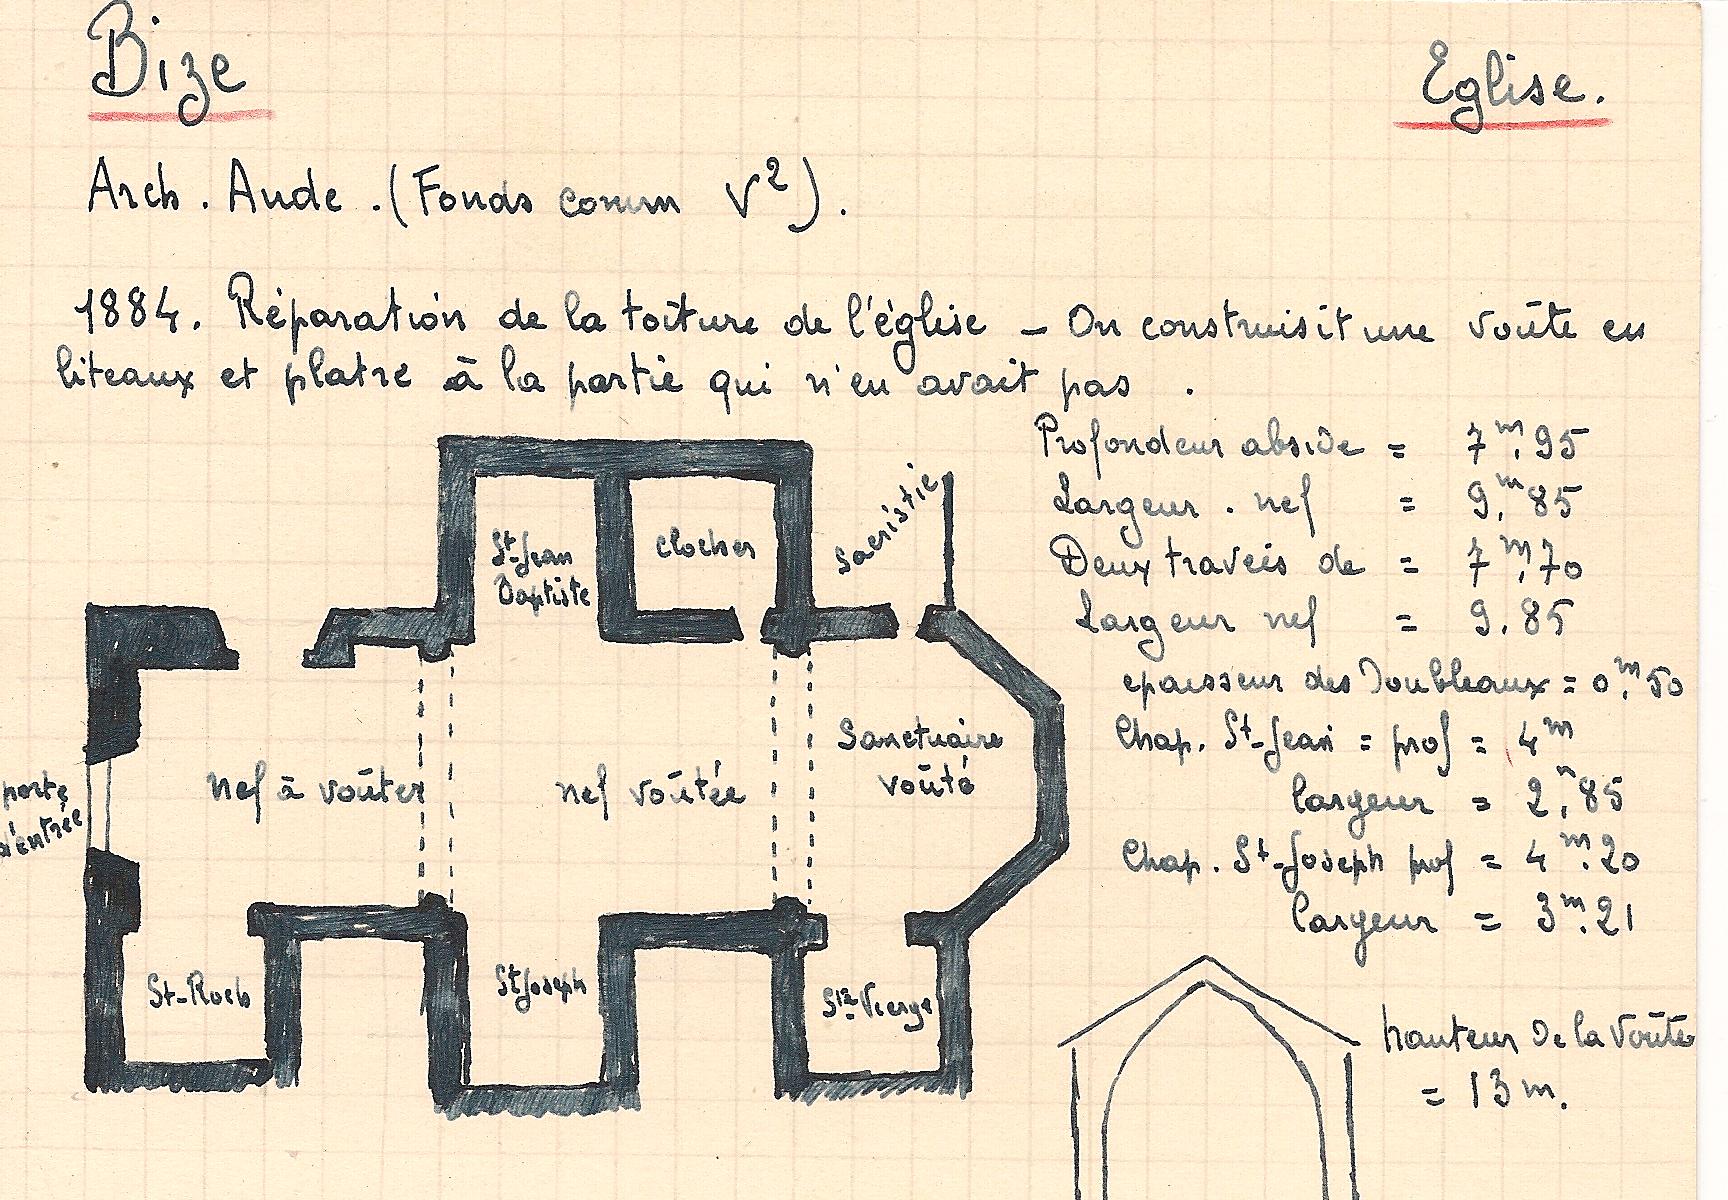 Bize
Eglise.
Arch. Aude. (Fonds comm V²).
1884. Réparation de la toiture de l'église – On construisit une voûte en
liteaux et platre à la partie qui n'en avait pas.
Profondeur abside = 7m.95
Largeur. nef = 9m.85
Deux travées de = 7m.70
Largeur nef = 9.85
epaisseur des Doubleaux = 0m.50
Chap. St-Jean = prof = 4m
largeur = 2m.85
Chap. St-Joseph prof = 4m.20
largeur = 3m.21
hauteur de la voûte
= 13 m.
St-Jean
Baptiste
clocher
Sacristie
porte
d'entrée
nef à voûter
nef voûtée
Sanctuaire
voûté
St-Roch
St Joseph
Ste Vierge